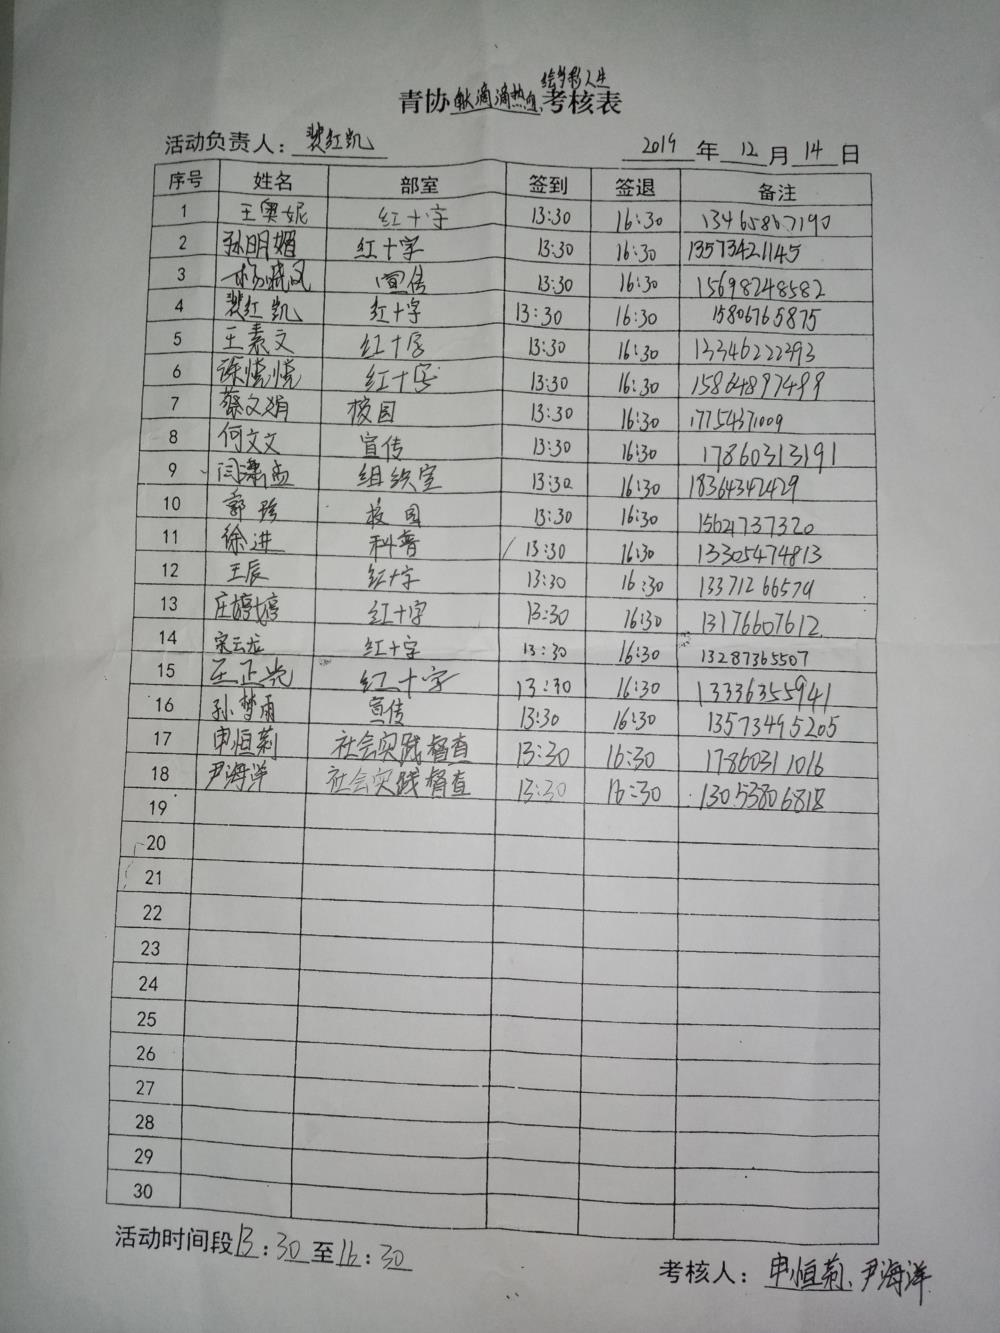 绘多彩人生
青协献滴滴热血考核表
活动负责人：裴红凯 2019年12月14日
序号 姓名 部室 签到 签退 备注
1 王奥妮 红十字 13:30 16:30 13465807190
2 孙明媚 红十字 13:30 16:30 13573421145
3 杨晓凤 宣传 13:30 16:30 15698248582
4 裴红凯 红十字 13:30 16:30 15806765875
5 王素文 红十字 13:30 16:30 13346222293
6 徐悦悦 红十字 13:30 16:30 15864897499
7 蔡文娟 校园 13:30 16:30 17754371009
8 何文文 宣传 13:30 16:30 17860313191
9 闫潇孟 组织室 13:30 16:30 18364342429
10 郭珍 校园 13:30 16:30 15621737320
11 徐进 科普 13:30 16:30 13305474813
12 王辰 红十字 13:30 16:30 13371266579
13 庄婷婷 红十字 13:30 16:30 13176607612
14 宋云龙 红十字 13:30 16:30 13287365507
15 王正兴 红十字 13:30 16:30 13336355941
16 孙梦雨 宣传 13:30 16:30 13573495205
17 申恒莉 社会实践督查 13:30 16:30 17860311016
18 尹海洋 社会实践督查 13:30 16:30 13053806818
19
20
21
22
23
24
25
26
27
28
29
30
活动时间段13:30至16:30
考核人：申恒莉、尹海洋